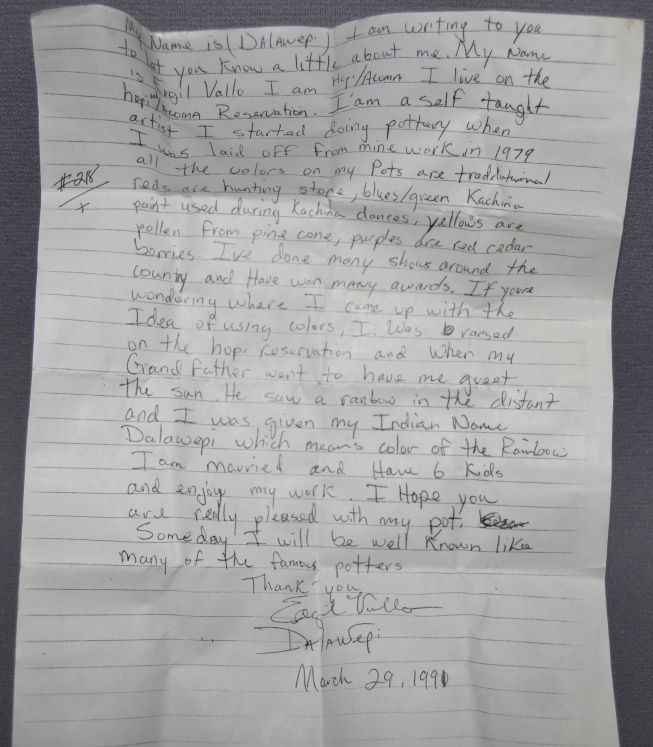 My Name is (Dalawepi) I am writing to you
to let you know a little about me. My Name
is Ergil Vallo I am Hopi/Acoma I live on the
hopi/Acoma Reservation. I'am a self taught
artist I started doing pottery when
I was laid off from mine work in 1979
all the colors on my Pots are traddintional
#28
reds are hunting stone, blues/green Kachina
+ paint used during Kachina dances, yellows are
pollen from pine cone, purples are red cedar
berries. I've done many shows around the
country and Have won many awards. If you're
wondering where I came up with the
Idea of using colors, I. was raised
on the hopi reservation and when my
Grand father went to have me greet
the sun. He saw a rainbow in the distant
and I was given my Indian Name
Dalawepi which means color of the Rainbow
I am married and Have 6 Kids
and enjoy my work. I Hope you
are really pleased with my pot.
Someday I will be well Known like
many of the famous potters
Thank you
Ergil Vallo
Dalawepi
March 29, 1991